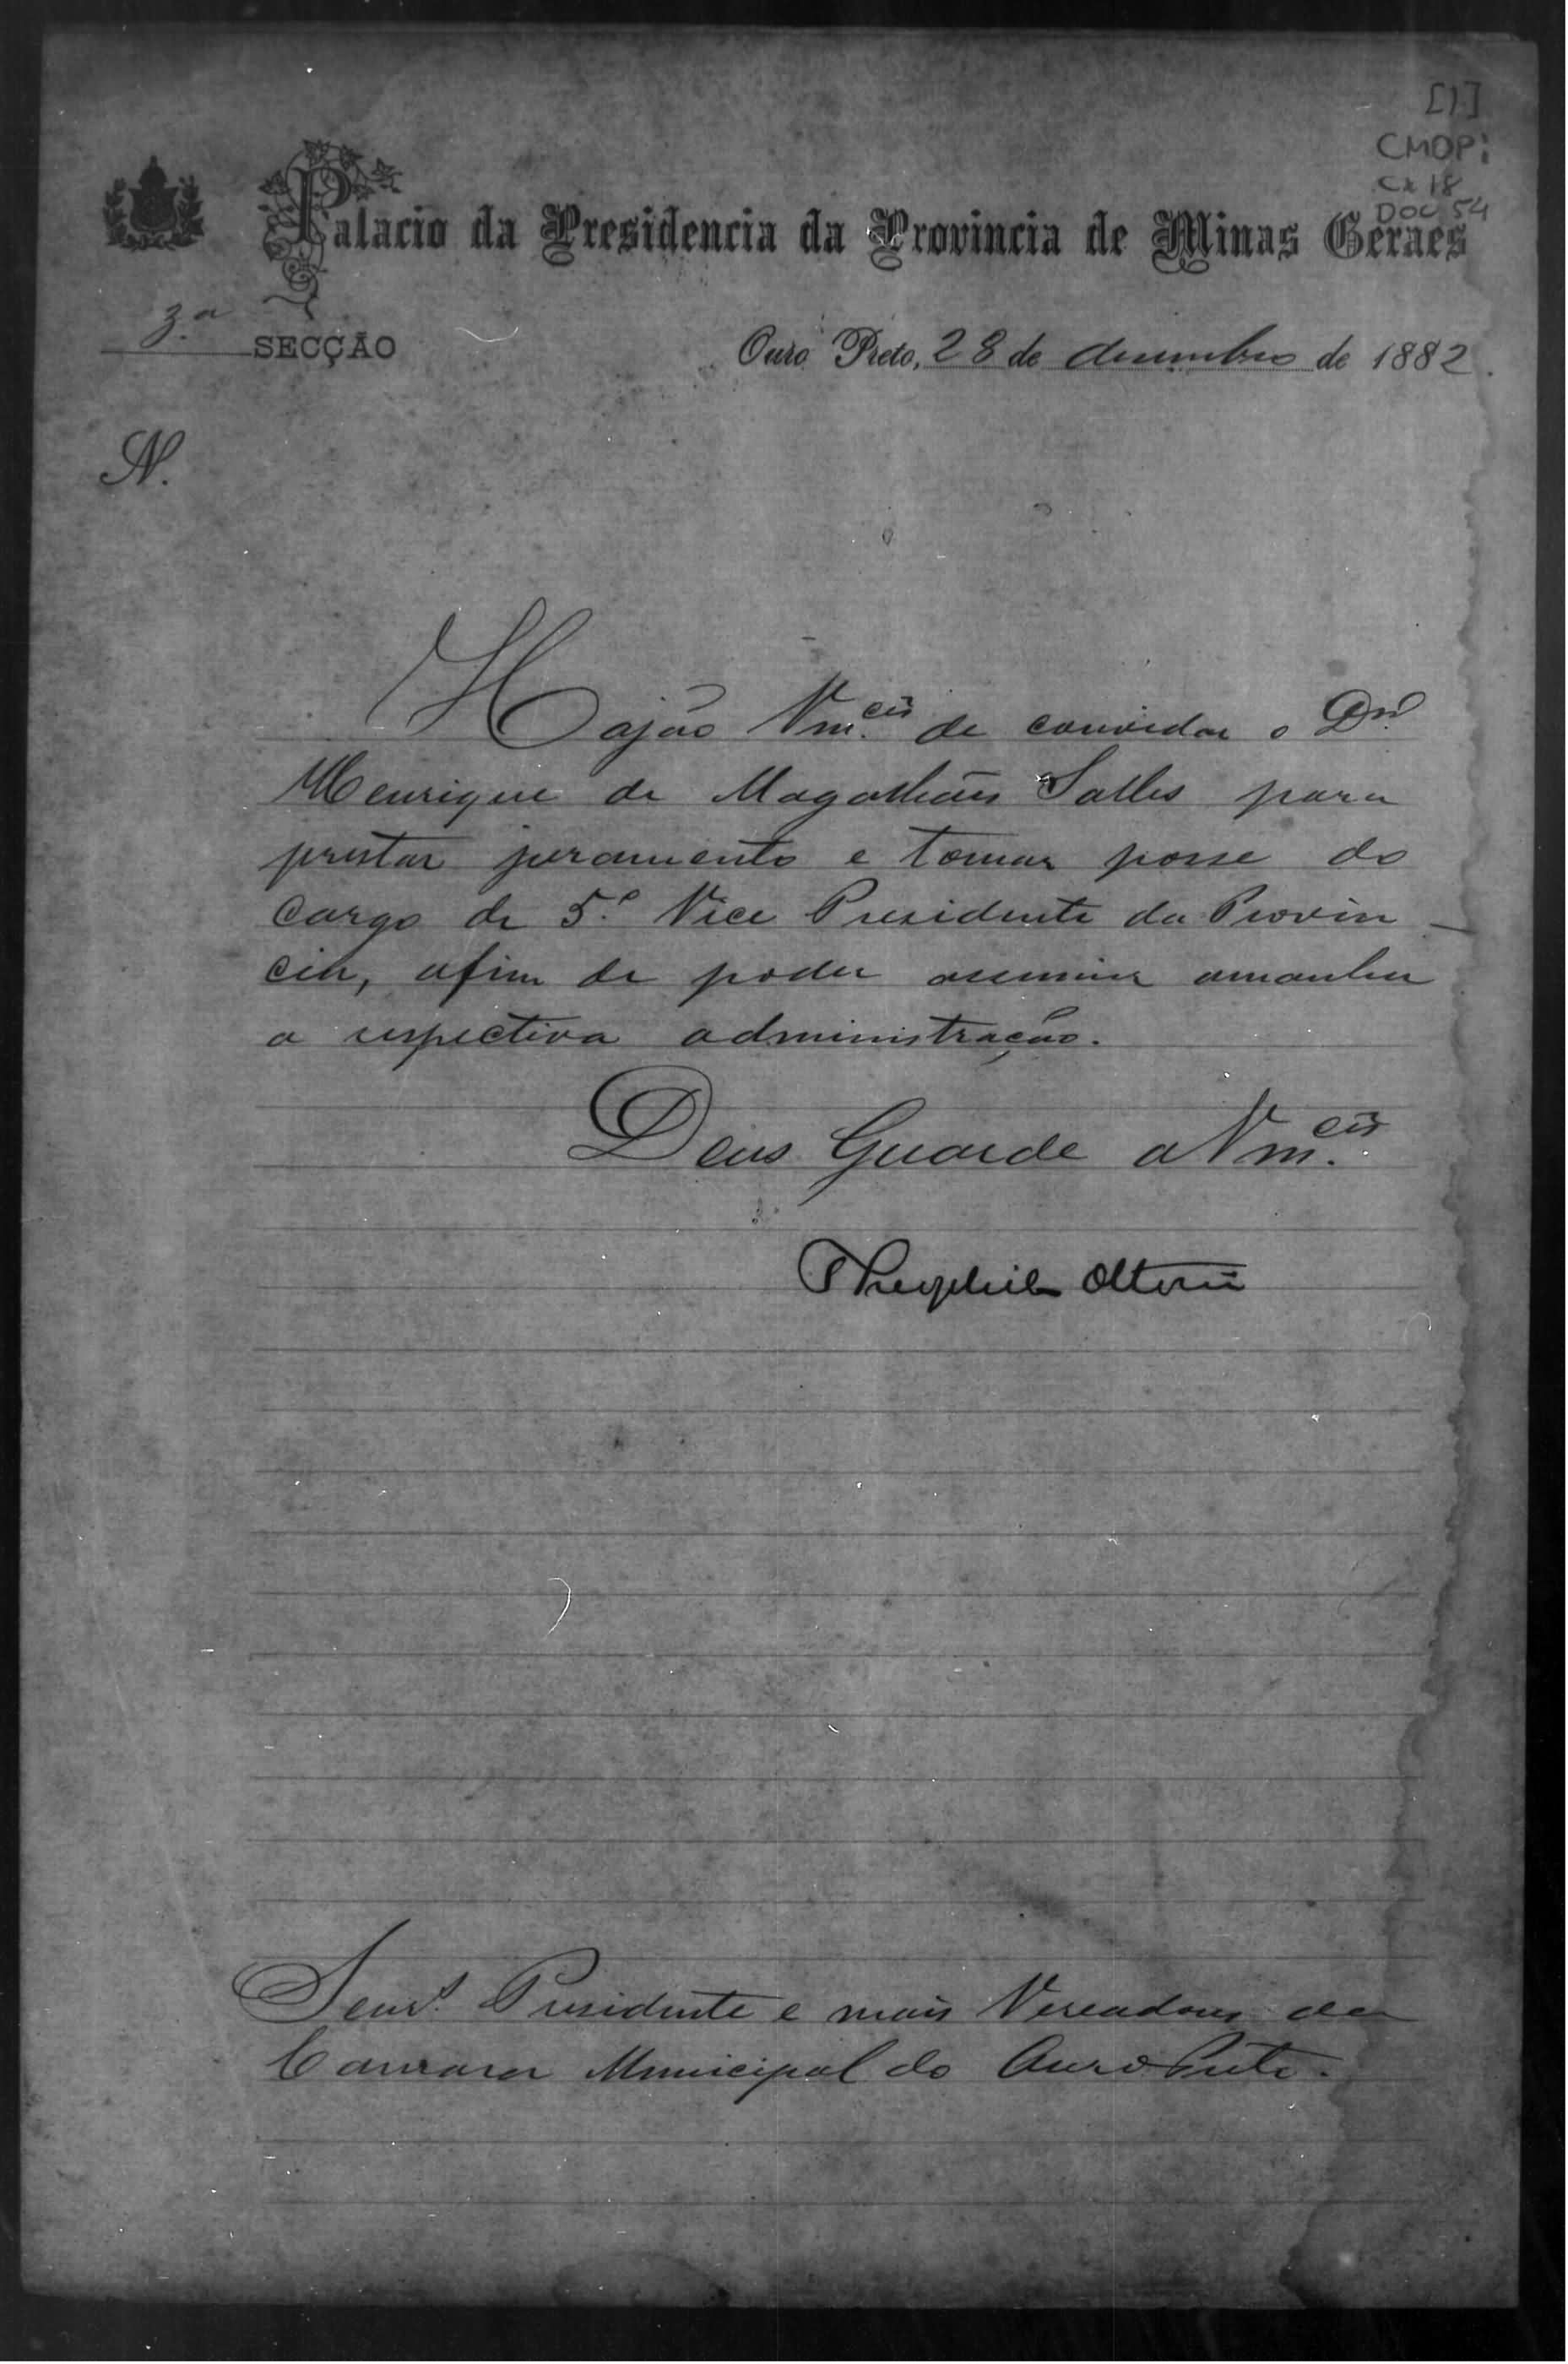 [1]
CMOP:
CX 18
DOC 54
Palacio da Presidencia da Provincia de Minas Geraes
3.ª SECÇÃO
Ouro Preto, 28 de desembro de 1882.
N.
Hajão Vm.ces de convidar o Dr.
Henrique de Magalhães Salles para
prestar juramento e tomar posse do
cargo de 5.º Vice Presidente da Provin-
cia, afim de poder assumir amanhã
a respectiva administração.
Deus Guarde a Vm.ces
Theophilo Ottoni
Senr.s Presidente e mais Vereadores da
Camara Municipal do Ouro Preto.